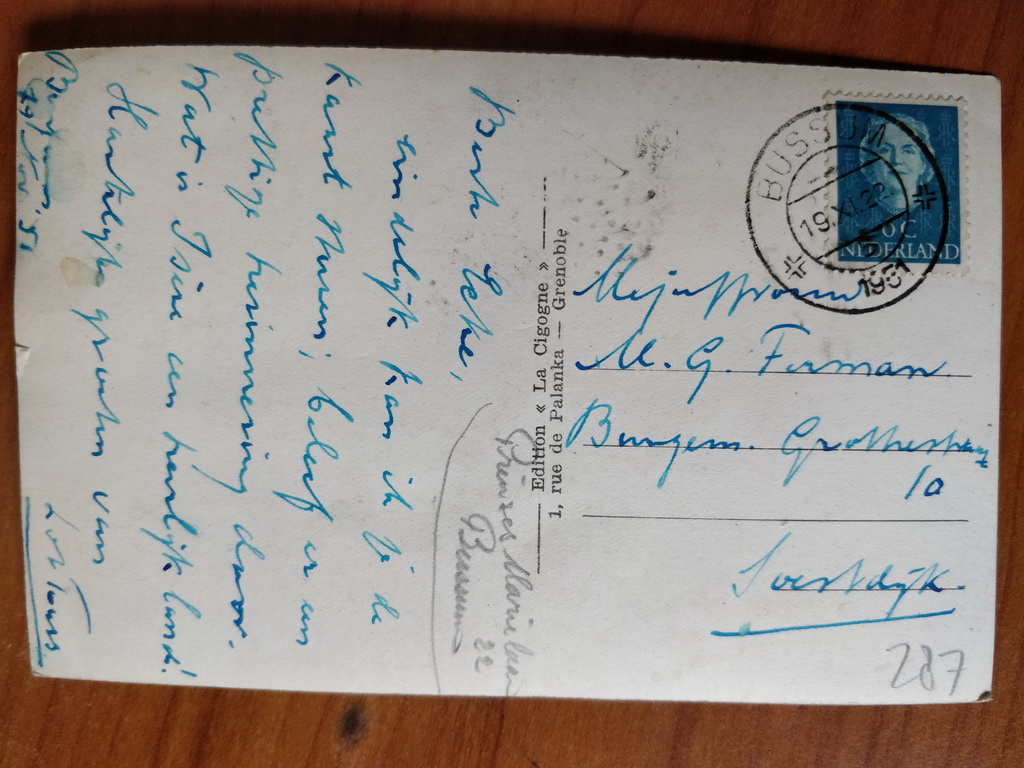 Beste
eindelijk kan ik je de
kaart sturen; beleef er een
prettige herinnering door.
Wat is Isère een heerlijk land!
Hartelijke groeten van
Bussum,
Edition « La Cigogne »
1, rue de Palanka — Grenoble
Prinses Marielaan
22
Bussum
BUSSUM
19.XI.22
1951
6 C
NEDERLAND
Mejuffrouw
M. G. Forman.
Burgem. Grothestraat
10
Soestdijk.
287